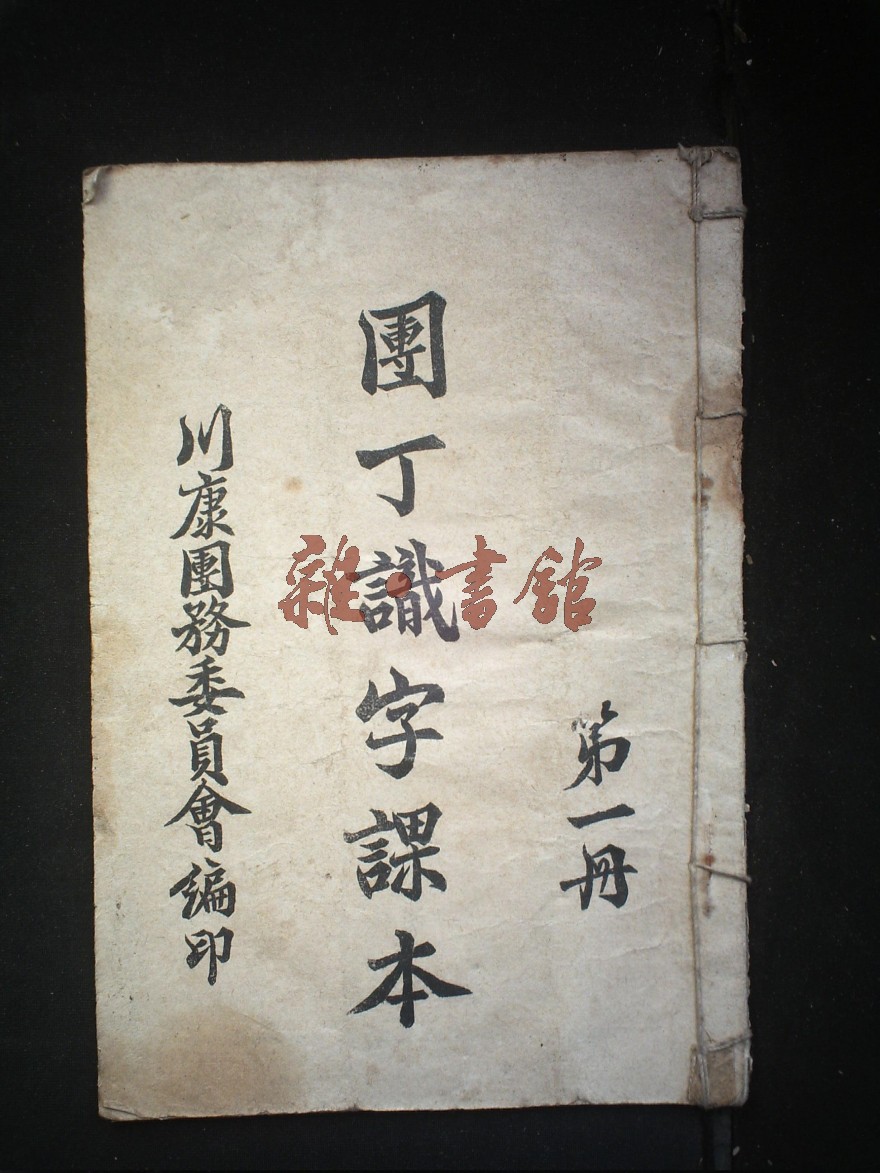 第一冊
團丁識字課本
川康團務委員會編印
雜·書館